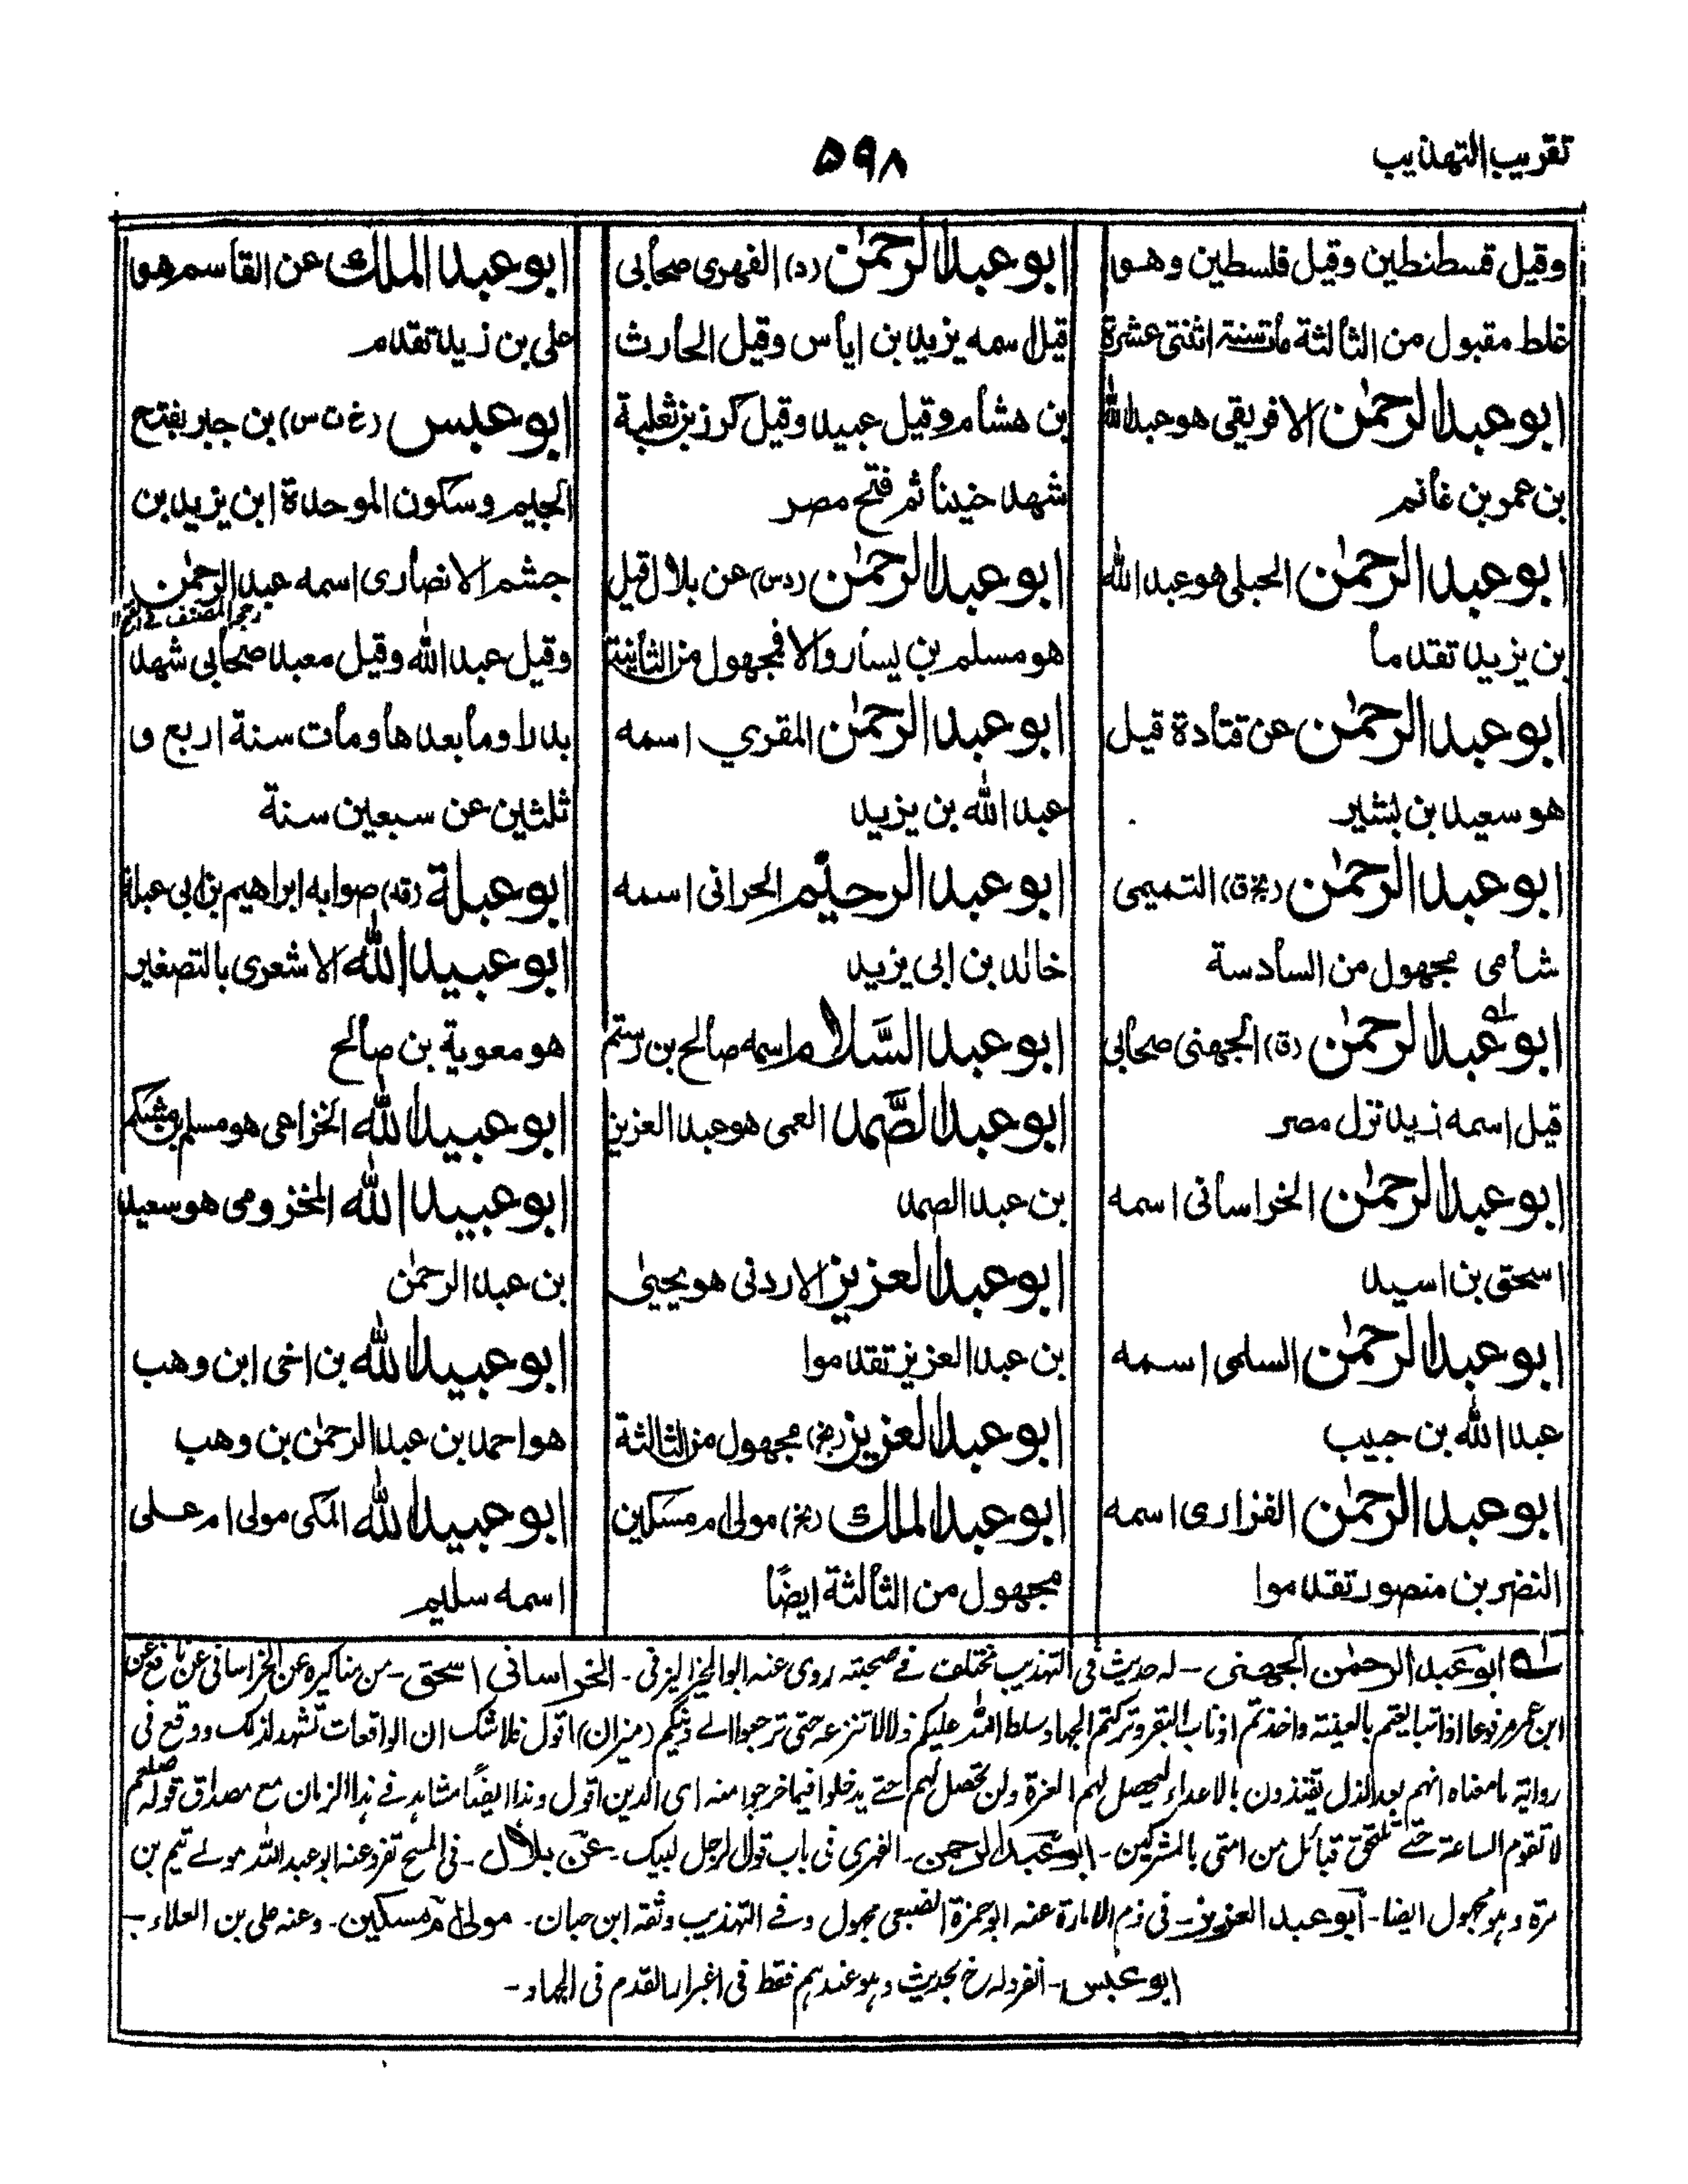 تقريب التهذيب
۵۹۸
وقيل قسطنطين وقيل فلسطين وهو
غلط مقبول من الثالثة مات سنة اثنتى عشرة
ابو عبد الرحمٰن الافريقى هو عبد الله
بن عمر بن غانم
ابو عبد الرحمٰن الحبلى هو عبد الله
بن يزيد تقدما
ابو عبد الرحمٰن عن قتادة قيل
هو سعيد بن بشير
ابو عبد الرحمٰن (بخ ق) التميمى
شامى مجهول من السادسة
ابو عبد الرحمٰن (ق) الجهنى صحابى
قيل اسمه زيد نزل مصر
ابو عبد الرحمٰن الخراسانى اسمه
اسحق بن اسيد
ابو عبد الرحمٰن السلمى اسمه
عبد الله بن حبيب
ابو عبد الرحمٰن الفزارى اسمه
النضر بن منصور تقدموا
ابو عبد الرحمٰن (د) الفهرى صحابى
قيل اسمه يزيد بن اياس وقيل الحارث
بن هشام وقيل عبيد وقيل كرز بن ثعلبة
شهد حنينا ثم فتح مصر
ابو عبد الرحمٰن (دس) عن بلال قيل
هو مسلم بن يسار والا فمجهول من الثانية
ابو عبد الرحمٰن المقري اسمه
عبد الله بن يزيد
ابو عبد الرحيم الحرانى اسمه
خالد بن ابى يزيد
ابو عبد السَّلام اسمه صالح بن رستم
ابو عبد الصَّمد العمى هو عبد العزيز
بن عبد الصمد
ابو عبد العزيز الاردنى هو يحيىٰ
بن عبد العزيز تقدموا
ابو عبد العزيز (بخ) مجهول من الثالثة
ابو عبد الملك (بخ) مولى ام مسكين
مجهول من الثالثة ايضًا
ابو عبد الملك عن القاسم هو
على بن زيد تقدم
ابو عبس (خ ت س) بن جبر بفتح
الجيم وسكون الموحدة ابن يزيد بن
جشم الانصارى اسمه عبد الرحمٰن
رجحه المصنف فى الفتح ۱۱
وقيل عبد الله وقيل معبد صحابى شهد
بدرا وما بعدها ومات سنة اربع و
ثلثين عن سبعين سنة
ابو عبلة (قد) صوابه ابراهيم بن ابى عبلة
ابو عبيد الله الاشعرى بالتصغير
هو معوية بن صالح
ابو عبيد الله الخزاعى هو مسلم بن مشكم
ابو عبيد الله المخزومى هو سعيد
بن عبد الرحمٰن
ابو عبيد الله بن اخى ابن وهب
هو احمد بن عبد الرحمٰن بن وهب
ابو عبيد الله المكى مولى ام على
اسمه سليم
له ابو عبد الرحمٰن الجهنى - له حديث فى التهذيب مختلف فے صحبته روى عنه ابو الخير اليزنى - الخراسانى اسحق - من مناكيره عن الخراسانى عن نافع عن
ابن عمر مرفوعا اذا تبايعتم بالعينة واخذتم اذناب البقر وتركتم الجهاد سلط الله عليكم ذلا لا تنزعه حتى ترجعوا الے دينكم (ميزان) اقول فلا شك ان الواقعات تشهد لذلك ووقع فى
رواية ما معناه انهم بعد الذل يقتذون بالاعداء ليحصل لهم العزة ولن تحصل لهم حتے يدخلوا فيما خرجوا منه اى الدين اقول وهذا ايضًا مشاهد فے هذا الزمان مع مصداق قوله صلعم
لا تقوم الساعة حتے تلتحق قبائل من امتى بالمشركين - ابو عبد الرحمن - الفهرى فى باب قول الرجل لبيك - عن بلال - فى المسح تفرد عنه ابو عبد الله مولے تيم بن
مرة وهو مجهول ايضا - ابو عبد العزيز - فى ذم الامارة عنه ابو حمزة الضبعى مجهول وفے التهذيب وثقه ابن حبان - مولى ام مسكين - وعنه على بن العلاء -
ابو عبس - انفرد له خ بحديث وهو عندهم فقط فى اغبرار القدم فى الجهاد -